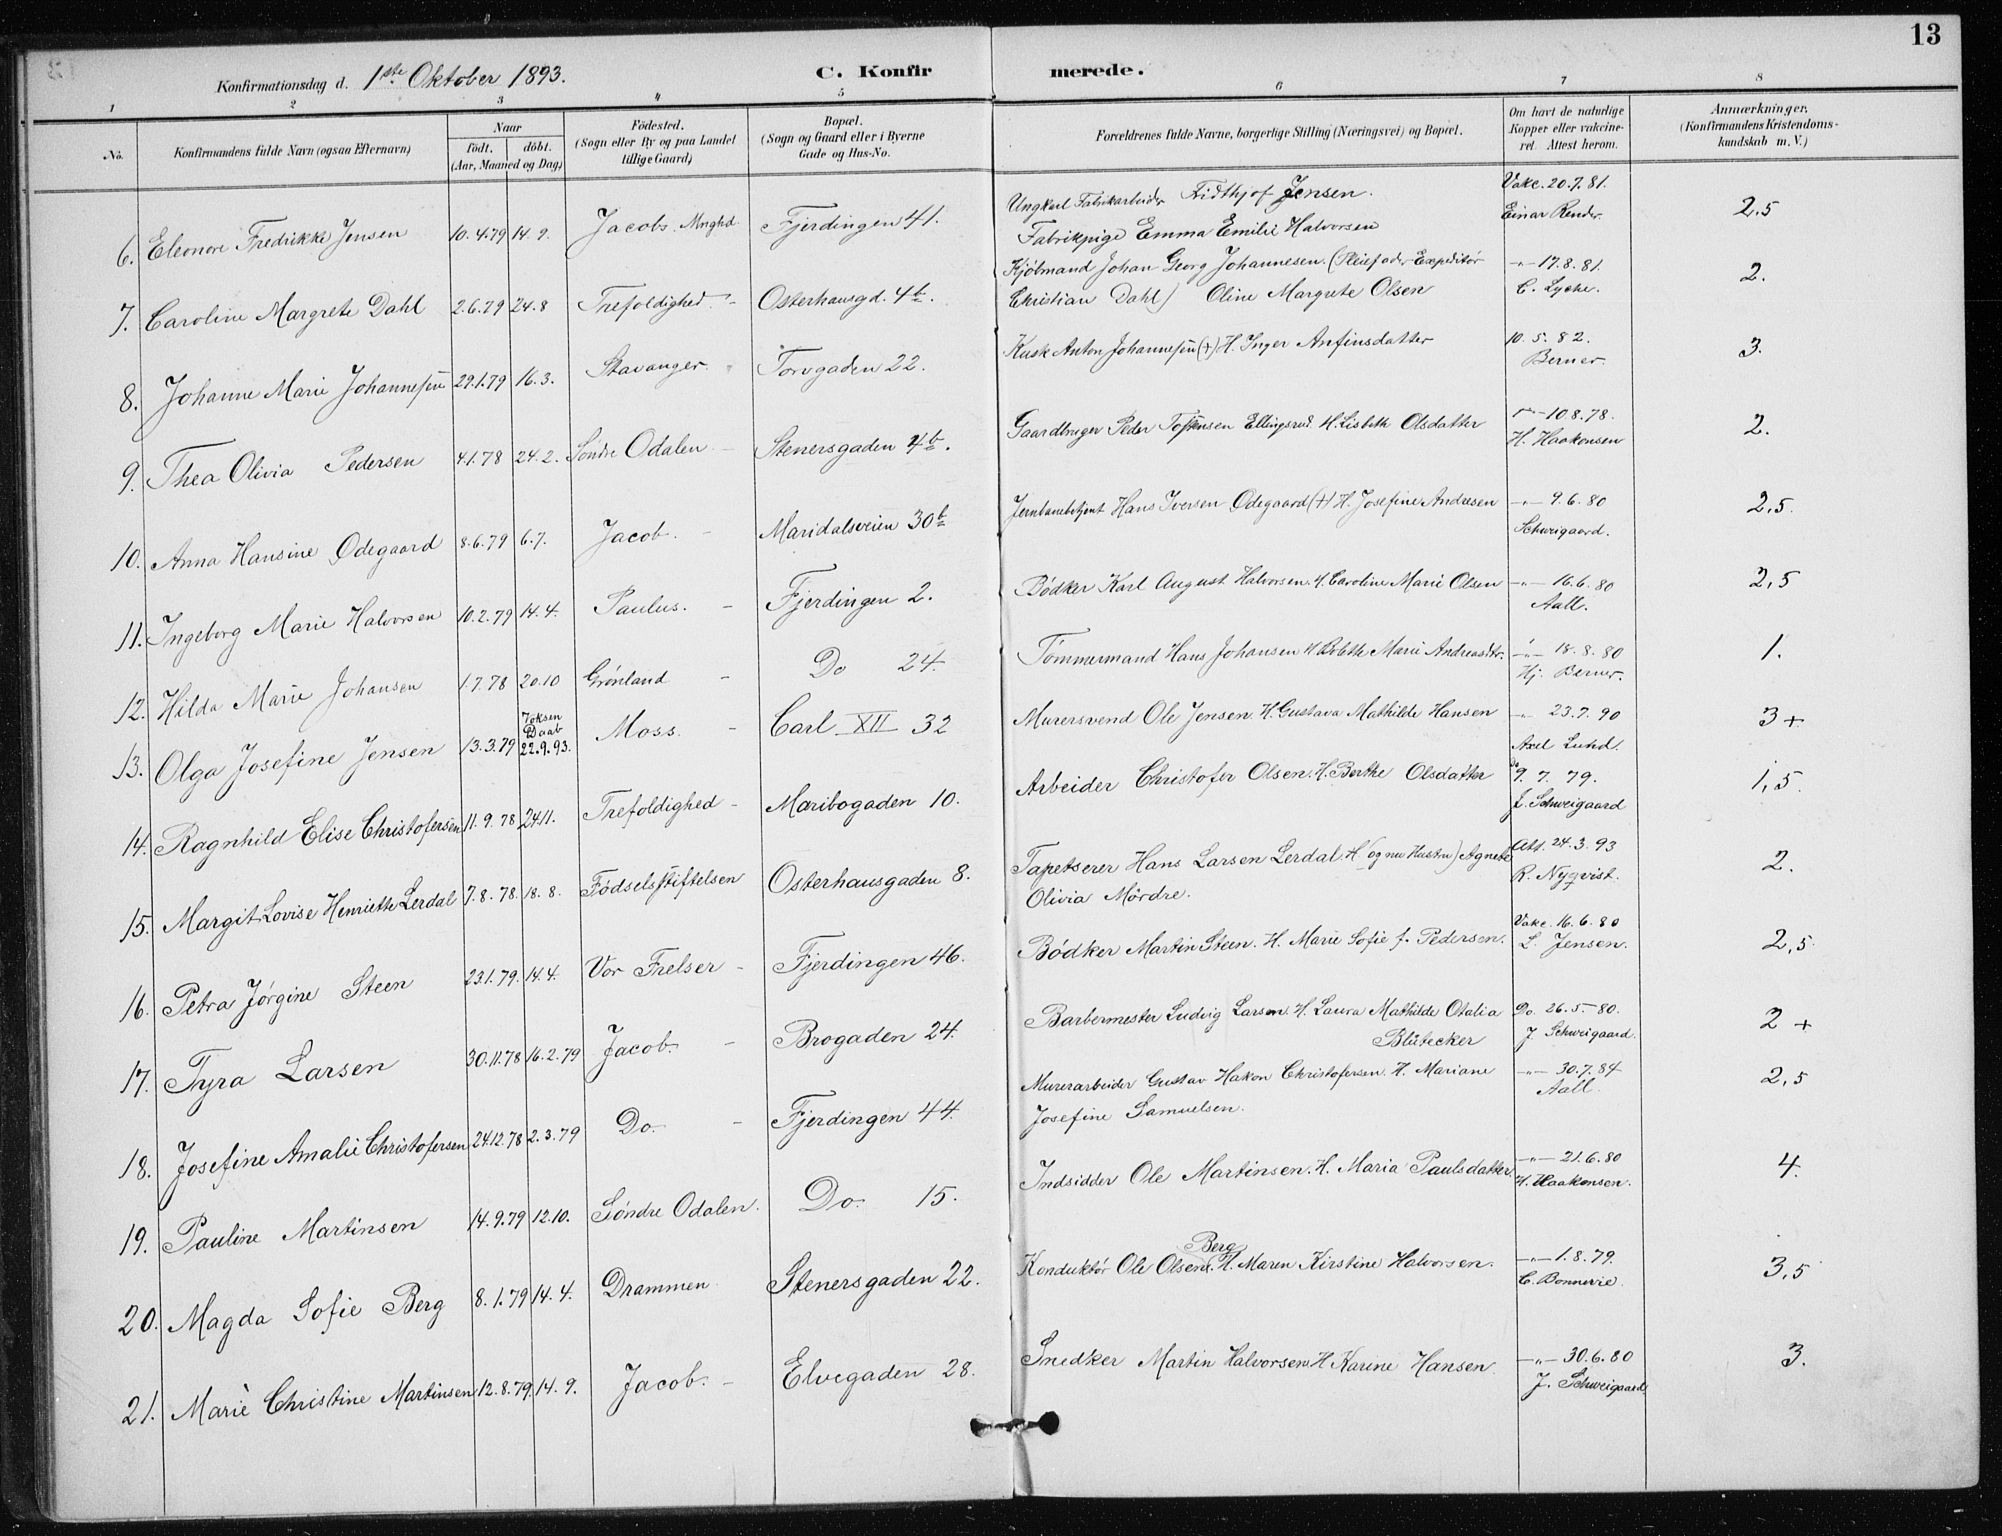 13
Konfirmationsdag d. 1ste Oktober 1893. C. Konfirmerede.
1 2 3 4 5 6 7 8
No. Konfirmandens fulde Navn (ogsaa Efternavn) Naar født. døbt. (Aar, Maaned og Dag) Fødested. (Sogn eller By og paa Landet tillige Gaard) Bopæl. (Sogn og Gaard eller i Byerne Gade og Hus-No. Forældrenes fulde Navne, borgerlige Stilling (Næringsvei) og Bopæl. Om havt de naturlige Kopper eller vakcineret. Attest herom. Anmærkninger. (Konfirmandens Kristendomskundskab m. V.)
6. Eleonore Fredrikke Jensen 10.4.79 14.9. Jacobs Mnghd. Fjerdingen 41. Ungkarl Fabrikarbeider Fridthjof Jensen. Vakc. 20.7.81. 2,5
Fabrikpige Emma Emilie Halvorsen Einar Render.
7. Caroline Margrete Dahl 2.6.79 24.8 Trefoldighed - Osterhausgd. 4b. Kjøbmand Johan Georg Johannesen. (Pleiefader Expeditør -"- 17.8.81. 2.
Christian Dahl) Oline Margrete Olsen C. Lyche.
8. Johanne Marie Johannesen 29.1.79 16.3. Stavanger. Torvgaden 22. Kusk Anton Johannesen (+) H. Inger Anfinsdatter 10.5.82. 3.
Berner.
9. Thea Olivia Pedersen 4.1.78 24.2. Søndre Odalen - Stenersgaden 4b. Gaardbruger Peder Ellingsrud. H. Lisbeth Olsdatter -"- 10.8.78. 2.
H. Haakonsen
10. Anna Hansine Ødegaard 8.6.79 6.7. Jacob. - Maridalsveien 30b Jernbanebetjent Hans Iversen Ødegaard (+) H. Josefine Andresen -"- 9.6.80 2,5.
Schweigaard.
11. Ingeborg Marie Halvorsen 10.2.79 14.4. Paulus. - Fjerdingen 2. Bødker Karl August Halvorsen. H. Caroline Marie Olsen -"- 16.6.80 2,5
Aall.
12. Hilda Marie Johansen 1.7.78 20.10 Grønland - Do 24. Tømmermand Hans Johansen H. Marie Andreasdtr. -"- 18.8.80 1.
Hj. Berner.
13. Olga Josefine Jensen 13.3.79 Voksen Daab 22.9.93. Moss. - Carl XII 32 Murersvend Ole Jensen. H. Gustava Mathilde Hansen -"- 23.7.90 3+
Axel Lund.
14. Ragnhild Elise Christofersen 11.9.78 24.11. Trefoldighed - Maribogaden 10. Arbeider Christofer Olsen. H. Berthe Olsdatter Do 9.7.79. 1,5
J. Schweigaard
15. Margit Lovise Henriette Lerdal 7.8.78. 18.8. Fødselsstiftelsen Osterhausgaden 8. Tapetserer Hans Larsen Lerdal. H. (og nu Hustru) Agnete Att. 24.3.93 2.
Olivia Mørdre. R. Nyqvist.
16. Petra Jørgine Steen 23.1.79. 14.4. Vor Frelser - Fjerdingen 46. Bødker Martin Steen. H. Marie Sofie f. Pedersen. Vakc. 16.6.80 2,5.
L. Jensen.
17. Tyra Larsen 30.11.78 16.2.79 Jacob. - Brogaden 24. Barbermester Ludvig Larsen. H. Laura Mathilde Otalia Do. 26.5-80. 2+
Blütecker J. Schweigaard.
18. Josefine Amalie Christofersen 24.12.78 2.3.79 Do. - Fjerdingen 44. Murerarbeider Gustav Hakon Christofersen. H. Mariane -"- 30.7.84 2,5
Josefine Samuelsen. Aall.
19. Pauline Martinsen 14.9.79 12.10. Søndre Odalen. Do. 15. Indsidder Ole Martinsen. H. Maria Paulsdatter -"- 21.6.80 4.
H. Haakonsen.
20. Magda Sofie Berg 8.1.79 14.4. Drammen. Stenersgaden 22. Konduktør Ole Olsen Berg. H. Maren Kirstine Halvorsen. -"- 1.8.79. 3,5
C. Bonnevie.
21. Marie Christine Martinsen 12.8.79. 14.9. Jacob. - Elvegaden 28. Snedker Martin Halvorsen H. Karine Hansen -"- 30.6.80 3.
J. Schweigaard.